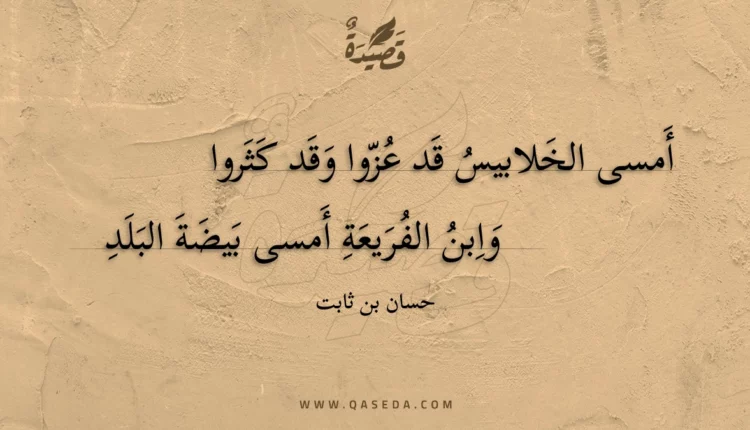 قَصِيدَةٌ
أَمسى الخَلابيسُ قَد عُزّوا وَقَد كَثَروا
وَاِبنُ الفُرَيعَةِ أَمسى بَيضَةَ البَلَدِ
حسان بن ثابت
WWW.QASEDA.COM